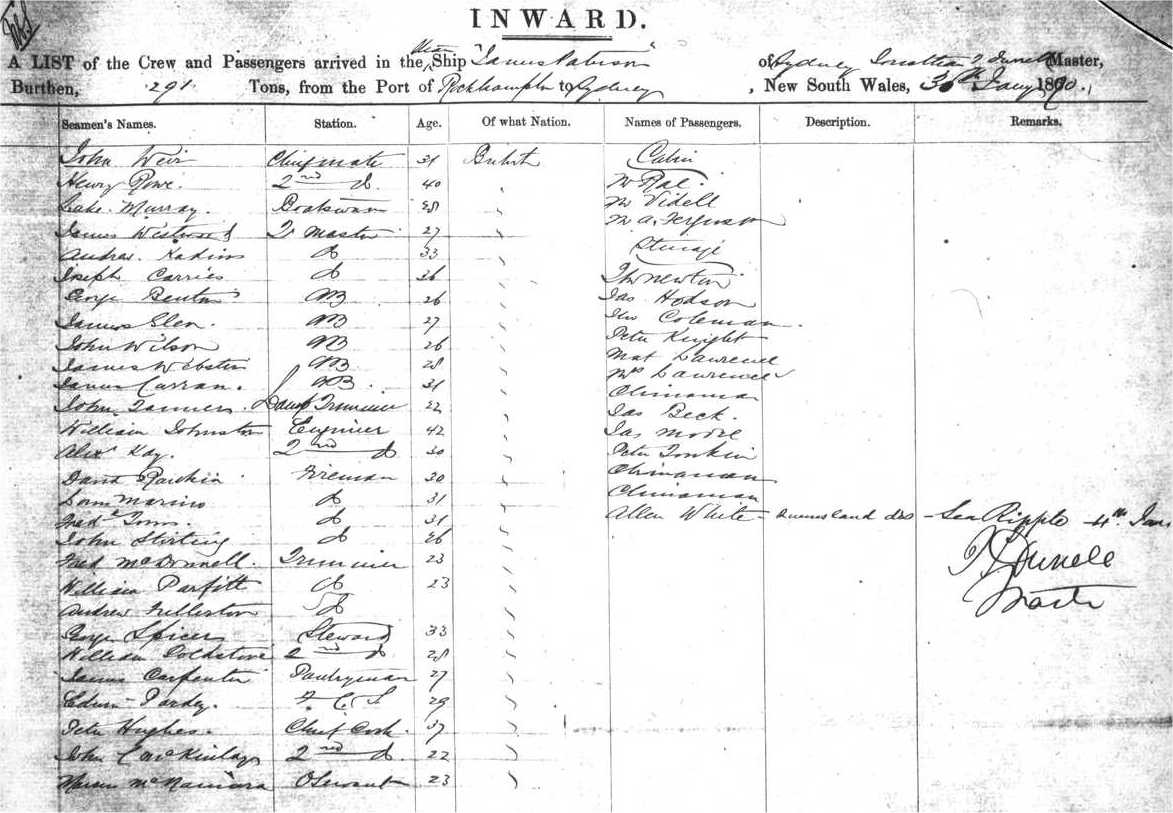 INWARD.
A LIST of the Crew and Passengers arrived in the Ship "James Paterson" of Sydney Master,
Burthen, 291 Tons, from the Port of Rockhampton to Sydney, New South Wales, 30th Jany 1870.
Seamen's Names. Station. Age. Of what Nation. Names of Passengers. Description. Remarks.
John Weir Chief mate 31 British Cabin
Henry Rowe. 2nd do 40 " Mr Rae.
Luke Murray. Boatswain 28 " Mr Videll
James Westwood Qr Master 27 " Mr A. Ferguson
Andrew do 33 " Steerage
Joseph Carries do 26 " Thos Newton
George Benton AB 26 " Jas Hodson
James Glen. AB 27 " Thos Coleman.
John Wilson AB 26 " Peter Knight
James Webster AB 28 " Mat Lawrence
James Curran. AB. 31 " Mrs Lawrence
John Tanner. Trimmer 22 " Chinaman
William Johnston Engineer 42 " Jas Beck.
Alexr Kay. 2nd do 30 " Jas Model
David Rankin Fireman 30 " Peter Tonkin
Marino do 31 " Chinaman
Fred Toms. do 31 " Chinaman
John Stirling do 26 " Allen White - Queensland des - Sea Ripple 4th Jan
Fred McDonnell. Trimmer 23 "
William Parfitt do 23 "
Andrew Fullerton do "
George Spicer Steward 33 "
William Coldstone 2nd do 28 "
James Carpenter Pantryman 27 "
Edwin Pardey. F. C. S 29 "
Peter Hughes. Chief Cook. 37 "
John McKinlay 2nd do 22 "
McNamara O Servant 23 "
Master